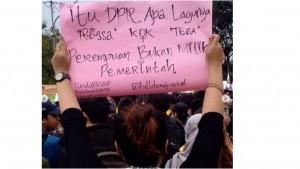 Itu DPR Apa Lagunya
"Rossa" KOK "TEGA"
Perempuan Bukan Milik
Pemerintah